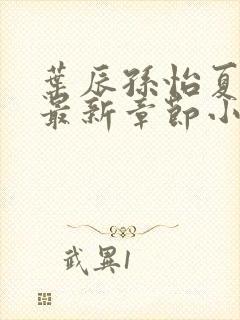 葉辰孫怡夏
最新章節小
武異1